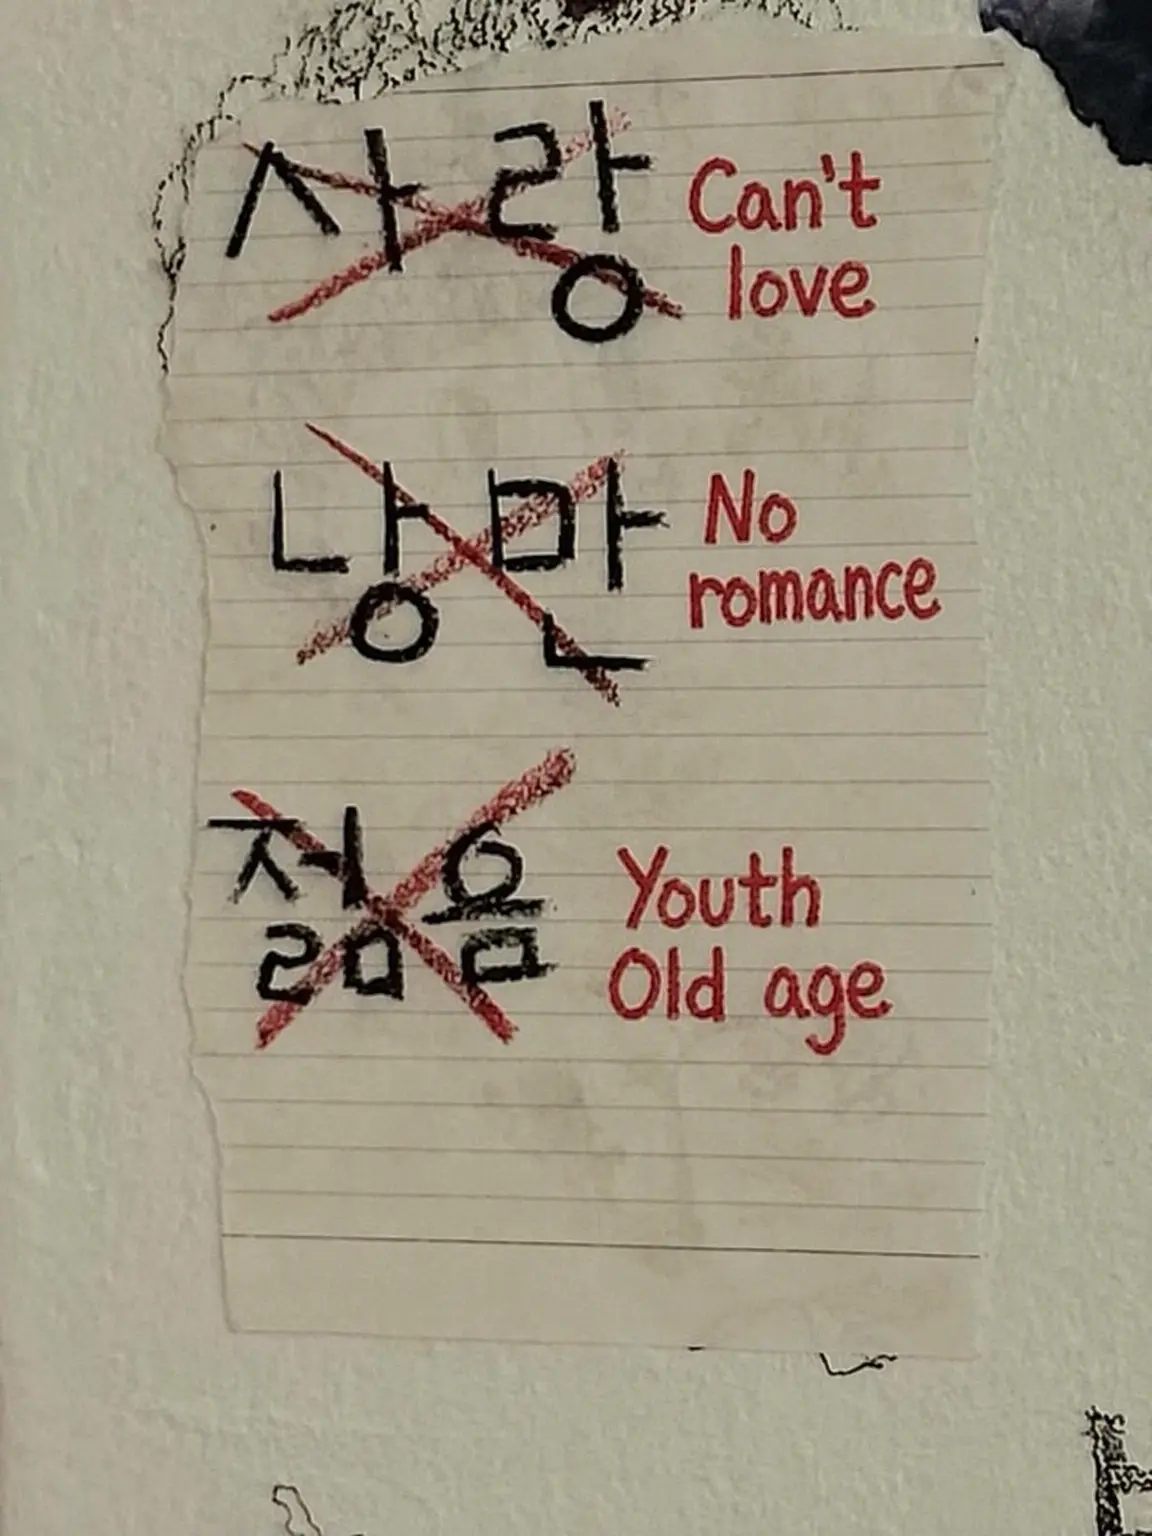 사랑 Can't
love
낭만 No
romance
젊음 Youth
Old age